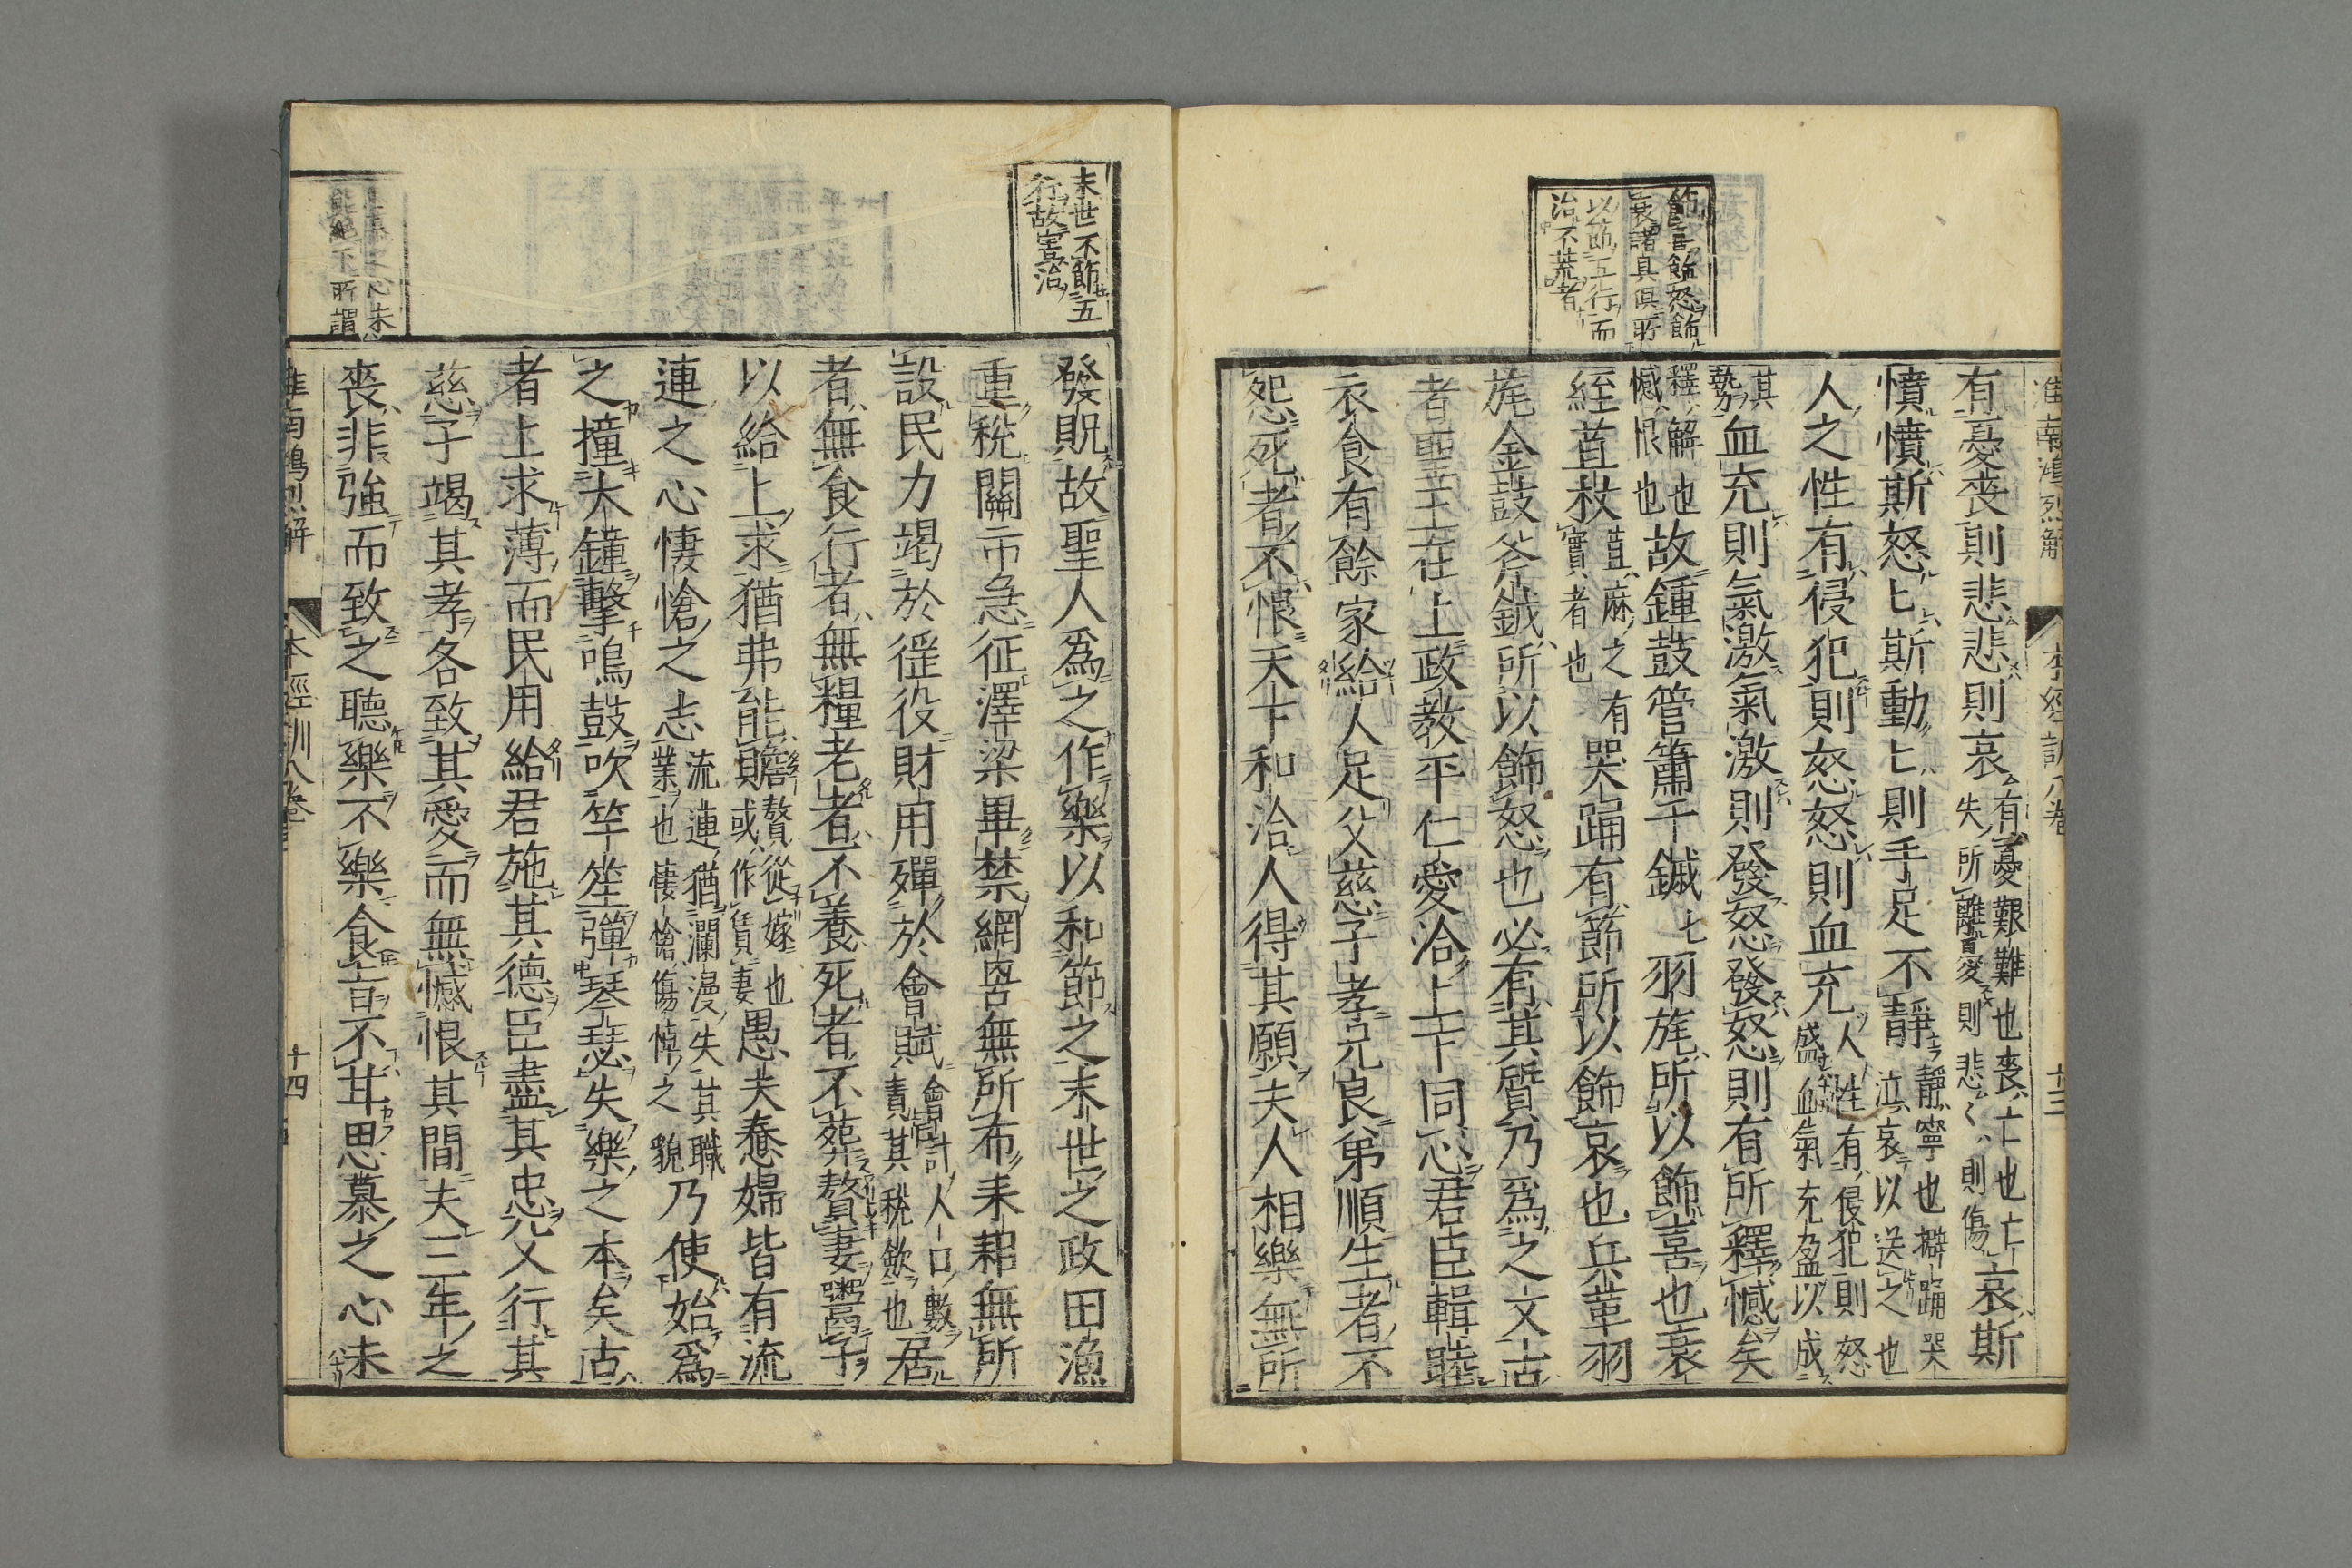 淮南鴻烈解 本經訓八卷 十三
飾喜飾怒飾
哀諸具俱所
以節五行而
治不荒者
有憂喪則悲悲則哀有憂艱難也喪亡也亡失所離愛則悲〻則傷哀斯
憤憤斯怒〻斯動〻則手足不靜靜寧也擗踊哭泣哀以送之也
人之性有侵犯則怒怒則血充人性有侵犯則怒盛血氣充盈以成
其勢血充則氣激氣激則發怒發怒則有所釋憾矣
釋解也憾恨也故鍾鼓管簫干鏚〻羽旄所以飾喜也衰
絰苴杖苴麻之有實者也哭踊有節所以飾哀也兵革羽
旄金鼓斧鉞所以飾怒也必有其質乃爲之文古
者聖王在上政教平仁愛洽上下同心君臣輯睦
衣食有餘家給人足父慈子孝兄良弟順生者不
怨死者不恨天下和洽人得其願夫人相樂無所
末世不節五
行故害治
發貺故聖人爲之作樂以和節之末世之政田漁
重稅關市急征澤梁畢禁網罟無所布耒耜無所
設民力竭於徭役財用殫於會賦會計人口數責其稅歛也居
者無食行者無糧老者不養死者不葬贅妻鬻子
以給上求猶弗能贍贅從嫁也或作賃妻愚夫惷婦皆有流
連之心悽愴之志流連猶瀾漫失其職業也悽愴傷悼之貌乃使始爲
之撞大鐘擊鳴鼓吹竽笙彈琴瑟失樂之本矣古
者上求薄而民用給君施其德臣盡其忠父行其
慈子竭其孝各致其愛而無憾恨其間夫三年之
喪非強而致之聽樂不樂食言不甘思慕之心未
淮南鴻烈解 本經訓八卷 十四